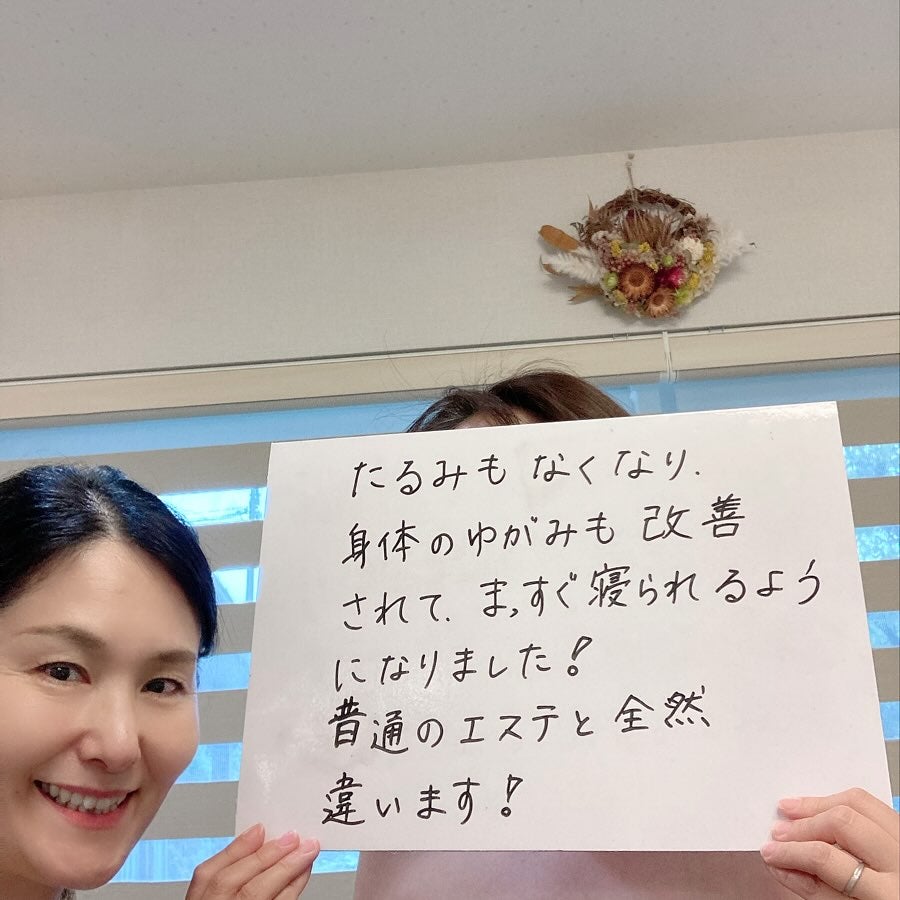 たるみもなくなり、
身体のゆがみも改善
されて、まっすぐ寝られるよう
になりました!
普通のエステと全然
違います!